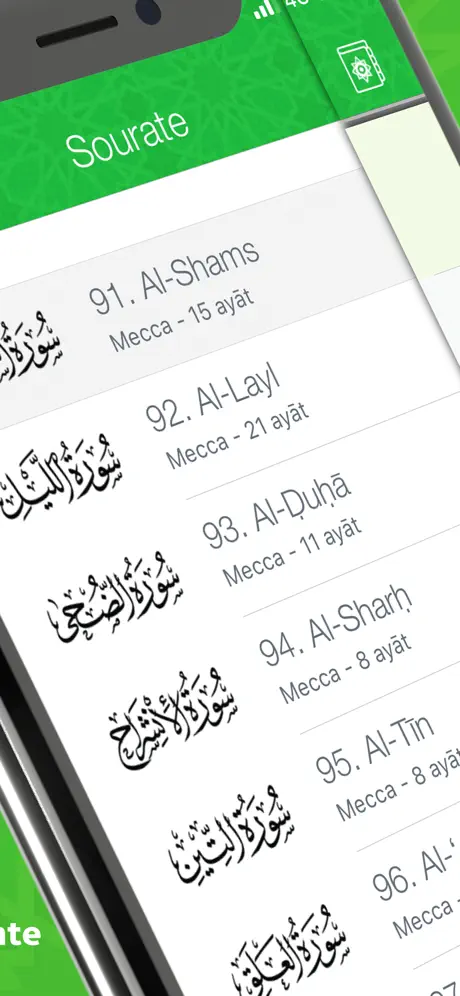 Sourate
91. Al-Shams
Mecca - 15 ayāt
92. Al-Layl
Mecca - 21 ayāt
سُورَةُ اللَّيْلِ
93. Al-Ḍuḥā
Mecca - 11 ayāt
سُورَةُ الضُّحَى
94. Al-Sharḥ
Mecca - 8 ayāt
سُورَةُ الْأَنْشِرَاحِ
95. Al-Tīn
Mecca - 8 ayāt
سُورَةُ التِّينِ
96. Al-‘
Mecca -
سُورَةُ الْعَلَقِ